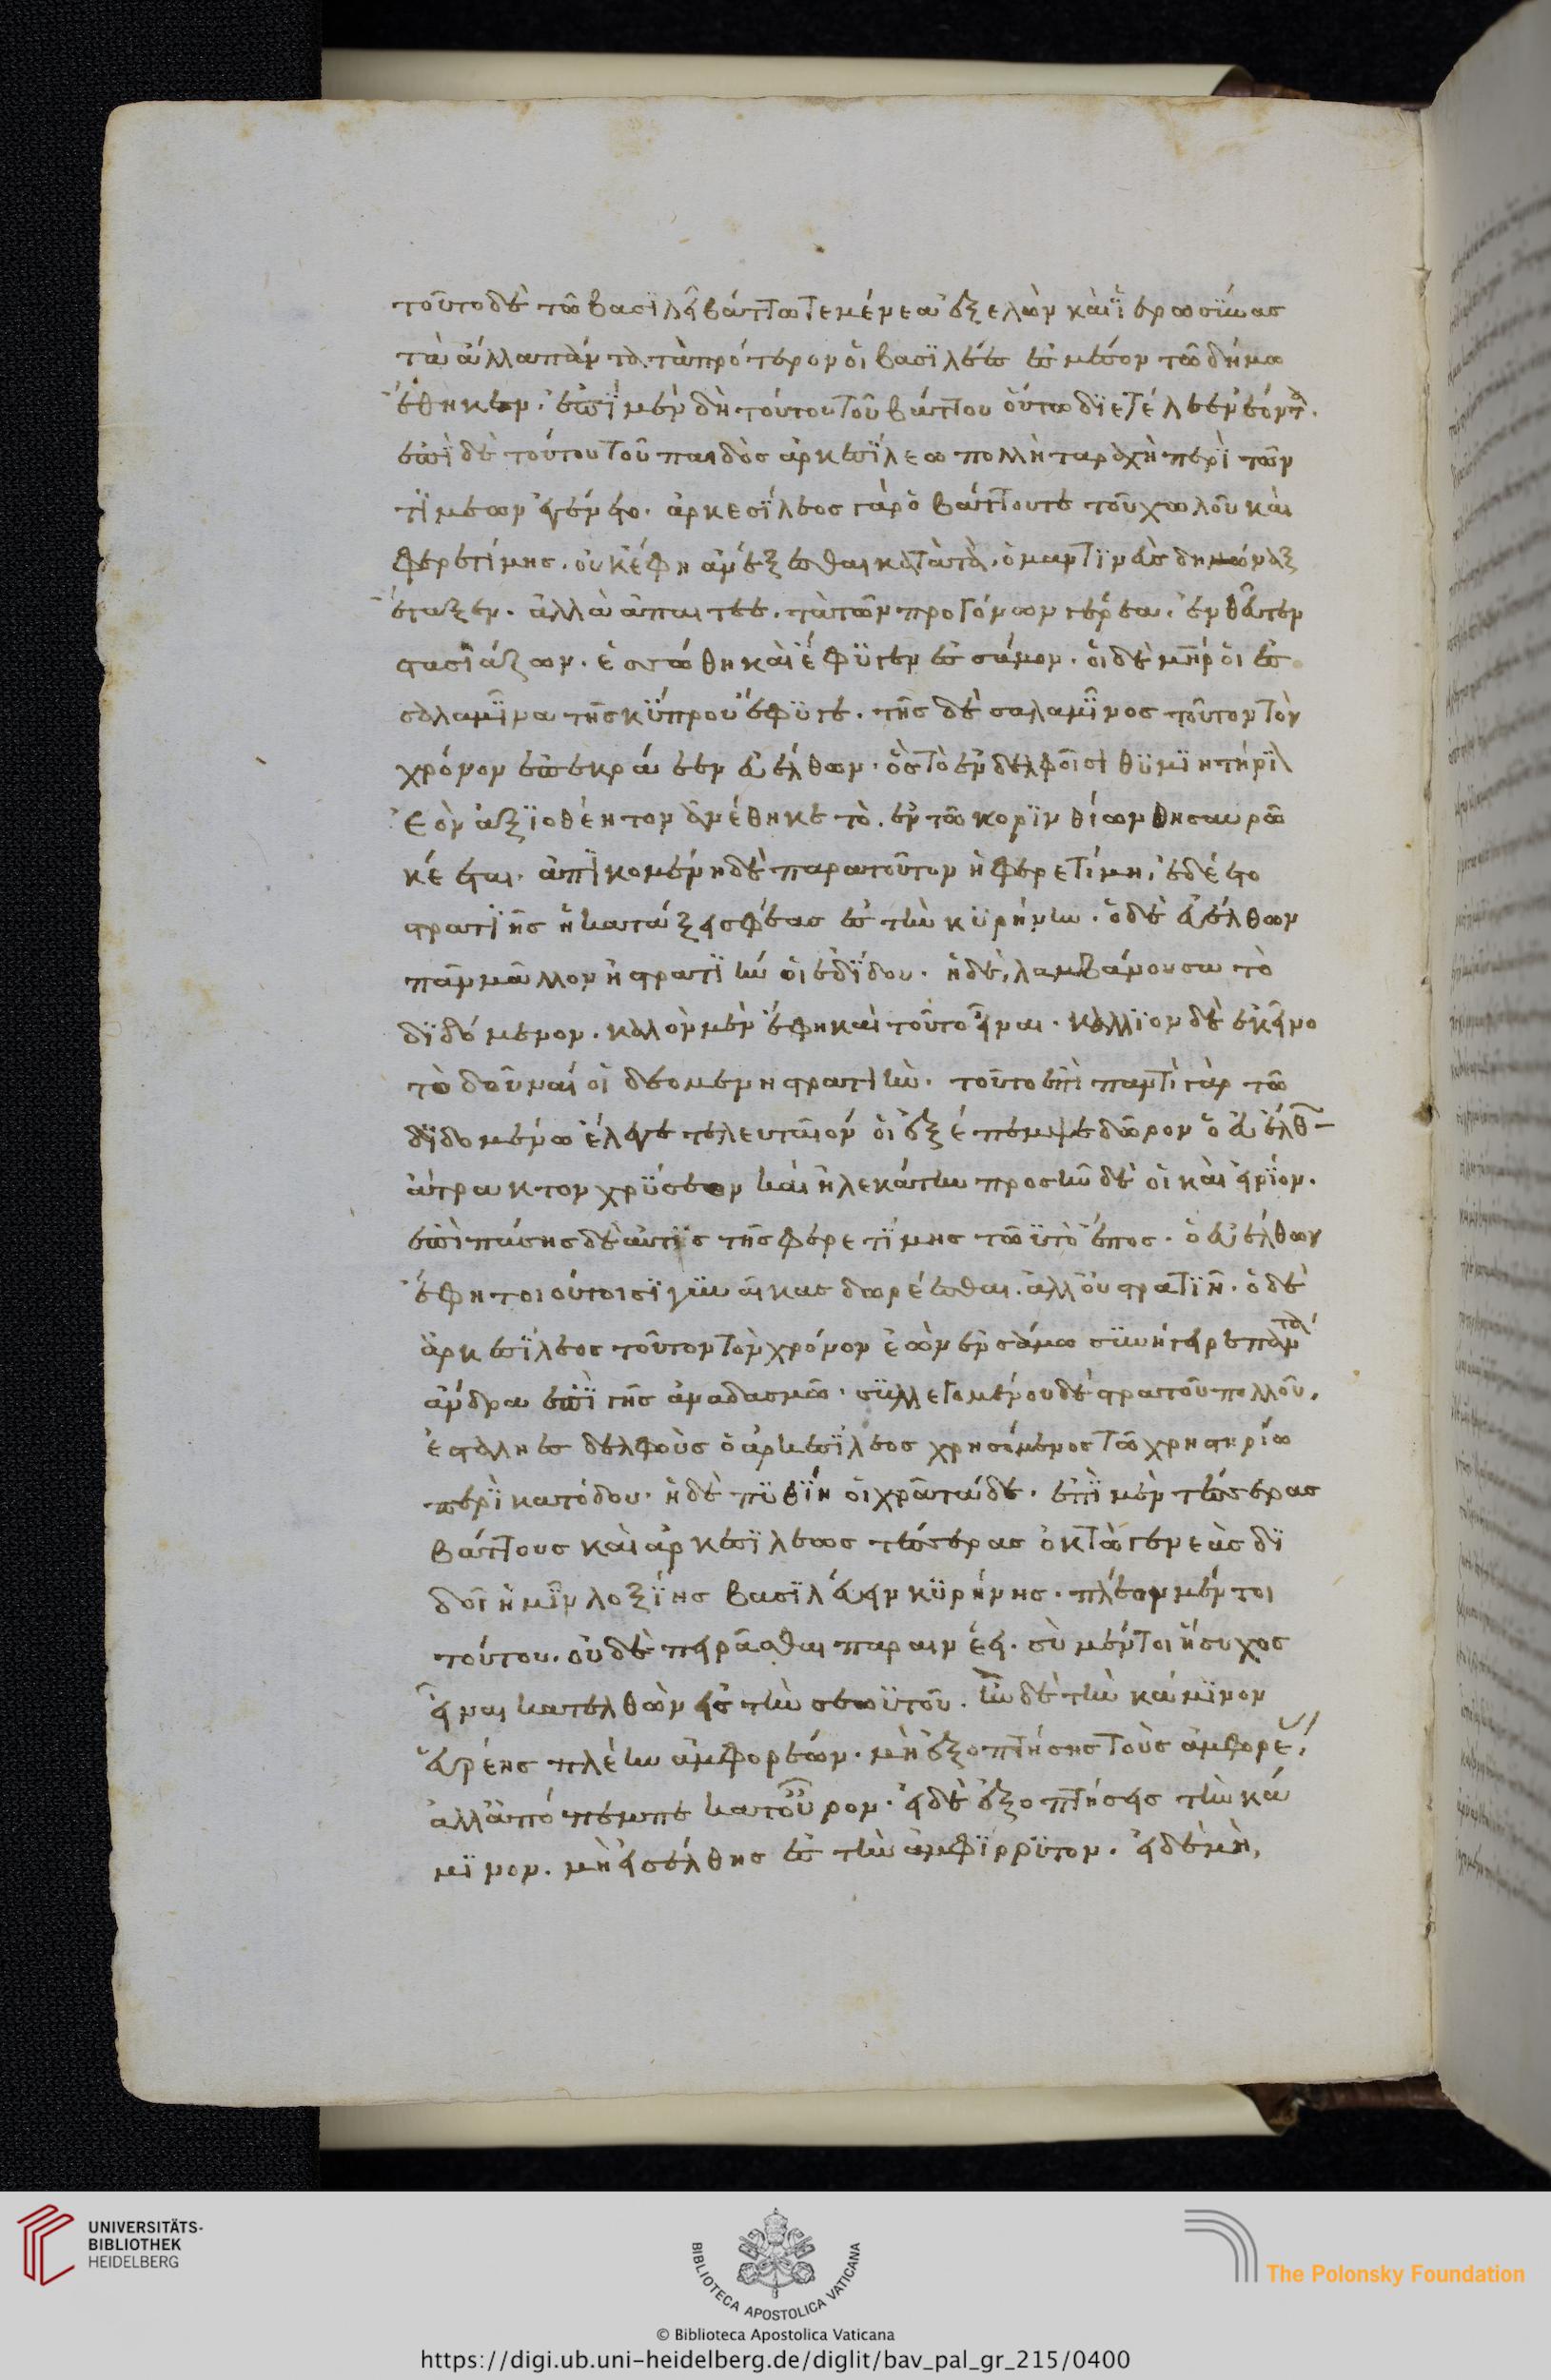 τοῦτο δὲ τῶ βασϊλέϊ βάττω τεμένεα ἐξελὼν καὶ ϊερωσύνας
τὰ ἄλλα πάντα τὰ πρότερον οἱ βασϊλέες ἐς μέσον τῶ δήμω
ἔθηκεν. ἐπὶ μὲν δὴ τούτου τοῦ βάττου οὕτω διετέλεεν ἐόντα.
ἐπὶ δὲ τούτου τοῦ παιδὸς ἀρκεσίλεω πολλὴ ταραχὴ περὶ τῶν
τϊμέων ἐγένετο. ἀρκεσΐλεος γὰρ ὁ βάττου τε τοῦ χωλοῦ καὶ
φερετίμης. οὐκ ἔφη ἀνέξεσθαι κατὰ τὰ. ὁ μαντϊνεὺς δημώναξ
ἔταξεν. ἀλλὰ ἀπαιτεε. τὰ τῶν προγόνων γέρεα. ἐνθεῦτεν
στασϊάζων. ἑσσώθη καὶ ἔφϋγεν ἐς σάμον. οἱ δὲ μήτηρ οἱ ἐς
σαλαμῖνα τῆς κΰπρου ἔφϋγε. τῆς δὲ σαλαμῖνος τοῦτον τὸν
χρόνον ἐπεκράτεεν εὐέλθων. ὃς τὸ ἐν δελφοῖσι θϋμϊητήρϊ
ἐὸν ἀξϊοθέητον ἀνέθηκε τὸ. ἐν τῶ κορϊνθίων θησαυρῶ
κέεται. ἀπϊκομένη δὲ παρὰ τοῦτον ἡ φερετίμη, ἐδέετο
στρατϊῆς ἣ κατάξει σφέας ἐς τὴν κϋρήνην. ὁ δὲ εὐέλθων
πᾶν μᾶλλον ἢ στρατϊήν οἱ ἐδίδου. ἡ δὲ, λαμβάνουσα τὸ
δϊδόμενον. καλὸν μὲν ἔφη καὶ τοῦτο εἶναι. κάλλϊον δὲ ἐκεῖνο
τὸ δοῦναί οἱ δεομένη στρατιὴν. τοῦτο ἐπὶ παντὶ γὰρ τῶ
δϊδομένω ἔλεγε τελευταῖόν οἱ ἐξέπεμψε δῶρον ὁ εὐέλθων
ἄτρακτον χρύσεον καὶ ἠλεκάτην προσῆν δέ οἱ καὶ εἰρϊον.
ἐπὶ πάσης δὲ αὖτις τῆς φερετΐμης τωϋτὸ ἔπος. ὁ εὐέλθων
ἔφη τοιούτοισϊ γυναῖκας δωρέεσθαι. ἀλλ' οὐ στρατϊῆ. ὁ δὲ
ἀρκεσΐλεος τοῦτον τὸν χρόνον ἐὼν ἐν σάμω συνήγειρε πάντα
ἄνδρα ἐπὶ γῆς ἀναδασμῶ. συλλεγομένου δὲ στρατοῦ πολλοῦ.
ἐστάλη ἐς δελφοὺς ὁ ἀρκεσΐλεος χρησόμενος τῶ χρηστηρίω
περὶ κατόδου. ἡ δὲ πϋθΐη οἱ χρᾶ τάδε. ἐπὶ μὲν τέσσερας
βάττους καὶ ἀρκεσϊλεως τέσσερας ὀκτὼ γενεὰς δϊ
δοῖ ἡμῖν λοξΐης βασϊλεύειν κϋρήνης. πλέον μέντοι
τούτου. οὐδὲ πειρᾶσθαι παραινέει. σὺ μέντοι ἥσυχος
εἶναι κατελθὼν ἐς τὴν σεωϋτοῦ. ἢν δὲ τὴν κάμϊνον
εὕρεης πλέην ἀμφορέων. μὴ ἐξοπτήσης τοὺς ἀμφορέ,
ἀλλ' ἀπόπεμπε κατ' οὖρον. εἰ δὲ ἐξοπτήσεις τὴν κά
μϊνον. μὴ ἐσέλθης ἐς τὴν ἀμφίρρϋτον. εἰ δὲ μὴ,
UNIVERSITÄTS-
BIBLIOTHEK
HEIDELBERG
BIBLIOTECA APOSTOLICA VATICANA
The Polonsky Foundation
© Biblioteca Apostolica Vaticana
https://digi.ub.uni-heidelberg.de/diglit/bav_pal_gr_215/0400